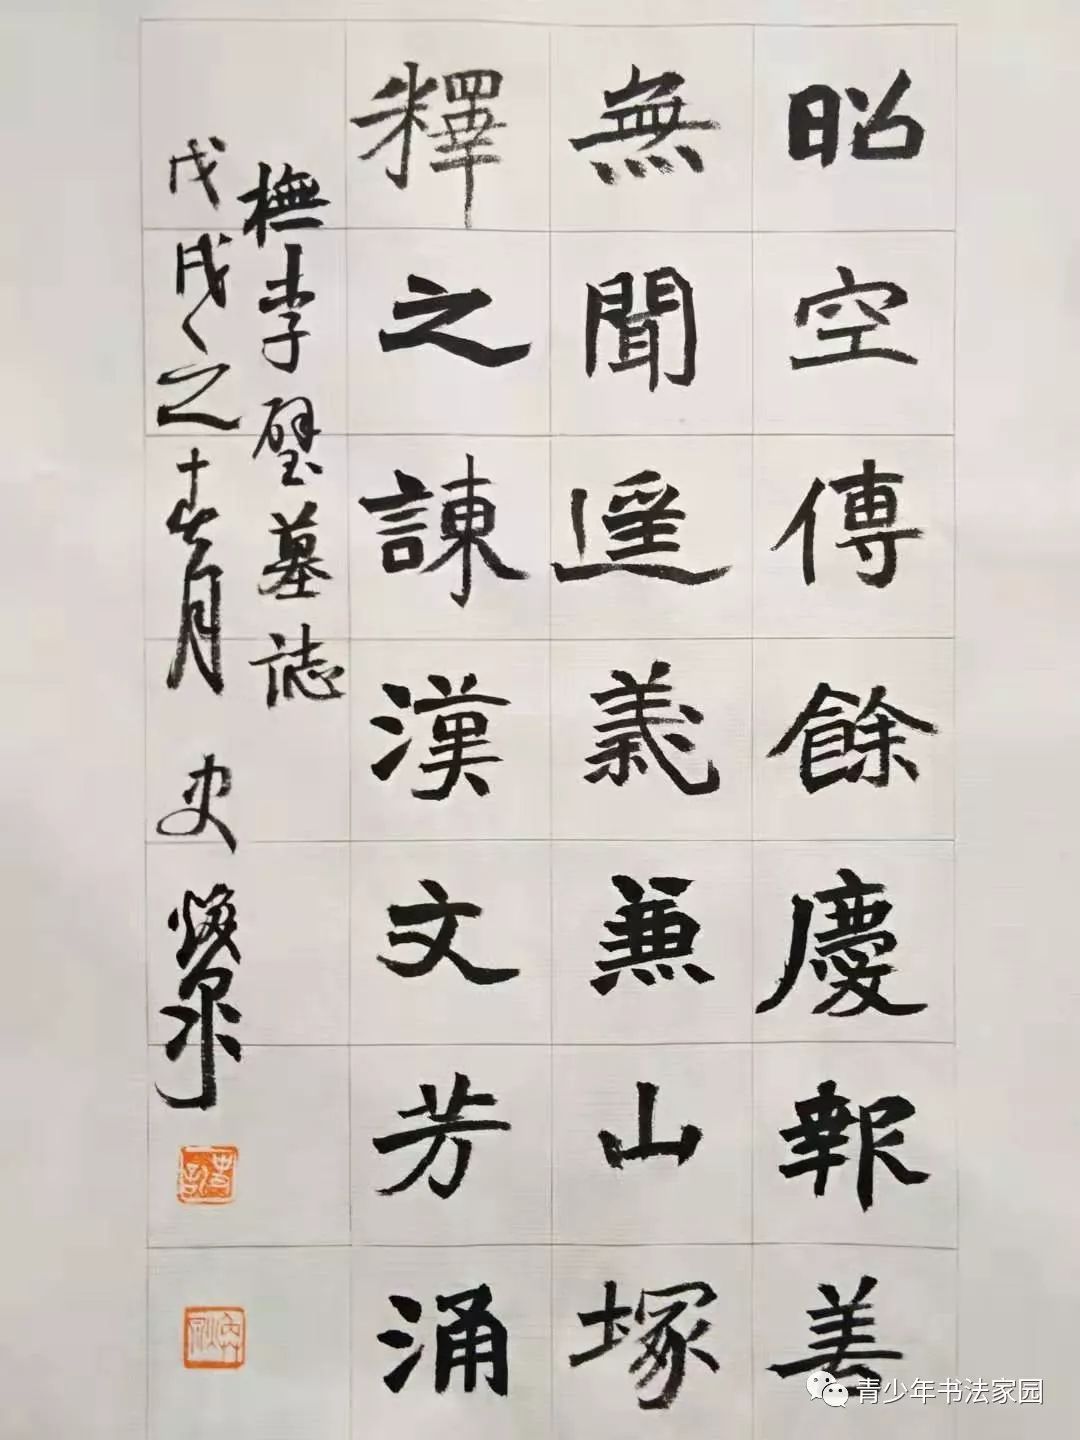 昭空傳餘慶報美
無聞遥義兼山塚
釋之諫漢文芳涌
橅李璧墓誌
戊戌之十有月 史焕泉
青少年书法家园